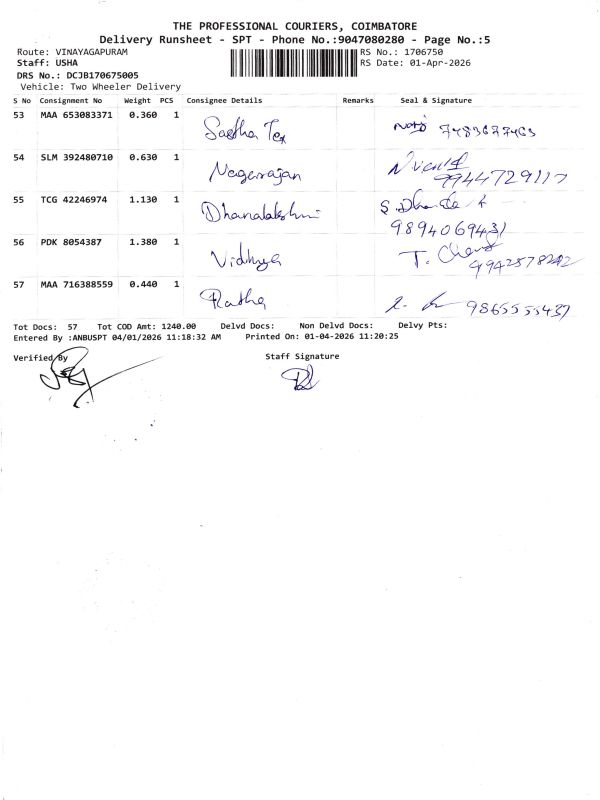 THE PROFESSIONAL COURIERS, COIMBATORE
Delivery Runsheet - SPT - Phone No.:9047080280 - Page No.:5
Route: VINAYAGAPURAM RS No.: 1706750
Staff: USHA RS Date: 01-Apr-2026
DRS No.: DCJB170675005
Vehicle: Two Wheeler Delivery
S No Consignment No Weight PCS Consignee Details Remarks Seal & Signature
53 MAA 653083371 0.360 1 Sastha Tex 7483677463
54 SLM 392480710 0.630 1 Nagarrajan 9944729117
55 TCG 42246974 1.130 1 Dhanalakshmi S. 9894069431
56 PDK 8054387 1.380 1 Vidhya T. 9942578242
57 MAA 716388559 0.440 1 Ratha 9865555437
Tot Docs: 57 Tot COD Amt: 1240.00 Delvd Docs: Non Delvd Docs: Delvy Pts:
Entered By :ANBUSPT 04/01/2026 11:18:32 AM Printed On: 01-04-2026 11:20:25
Verified By Staff Signature